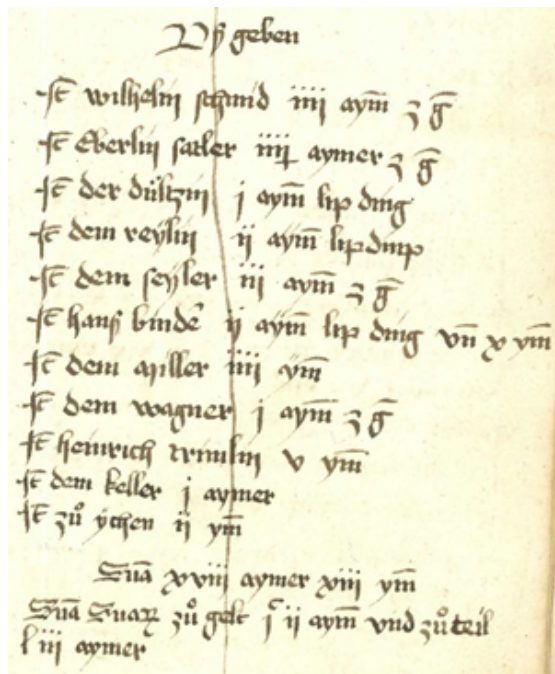 Vß geben
Jt̄ wilhelm schmid iiij aym̄ z ḡ
Jt̄ Eberlin satler iiij aymer z ḡ
Jt̄ der dültzin j aym̄ lip ding
Jt̄ dem reylin ij aym̄ lip ding
Jt̄ dem seyler iij aym̄ z ḡ
Jt̄ hanß bindē ij aym̄ lip ding vn̄ x ym̄
Jt̄ dem miller iiij ym̄
Jt̄ dem wagner j aym̄ z ḡ
Jt̄ heinrich v ym̄
Jt̄ dem keller j aymer
Jt̄ zuͦ ychen ij ym̄
Sum̄a xviij aymer xiij ym̄
Sum̄a Sum̄aꝝ zuͦ gelt jᶜ ij aym̄ vnd zuͦ teil
l iij aymer